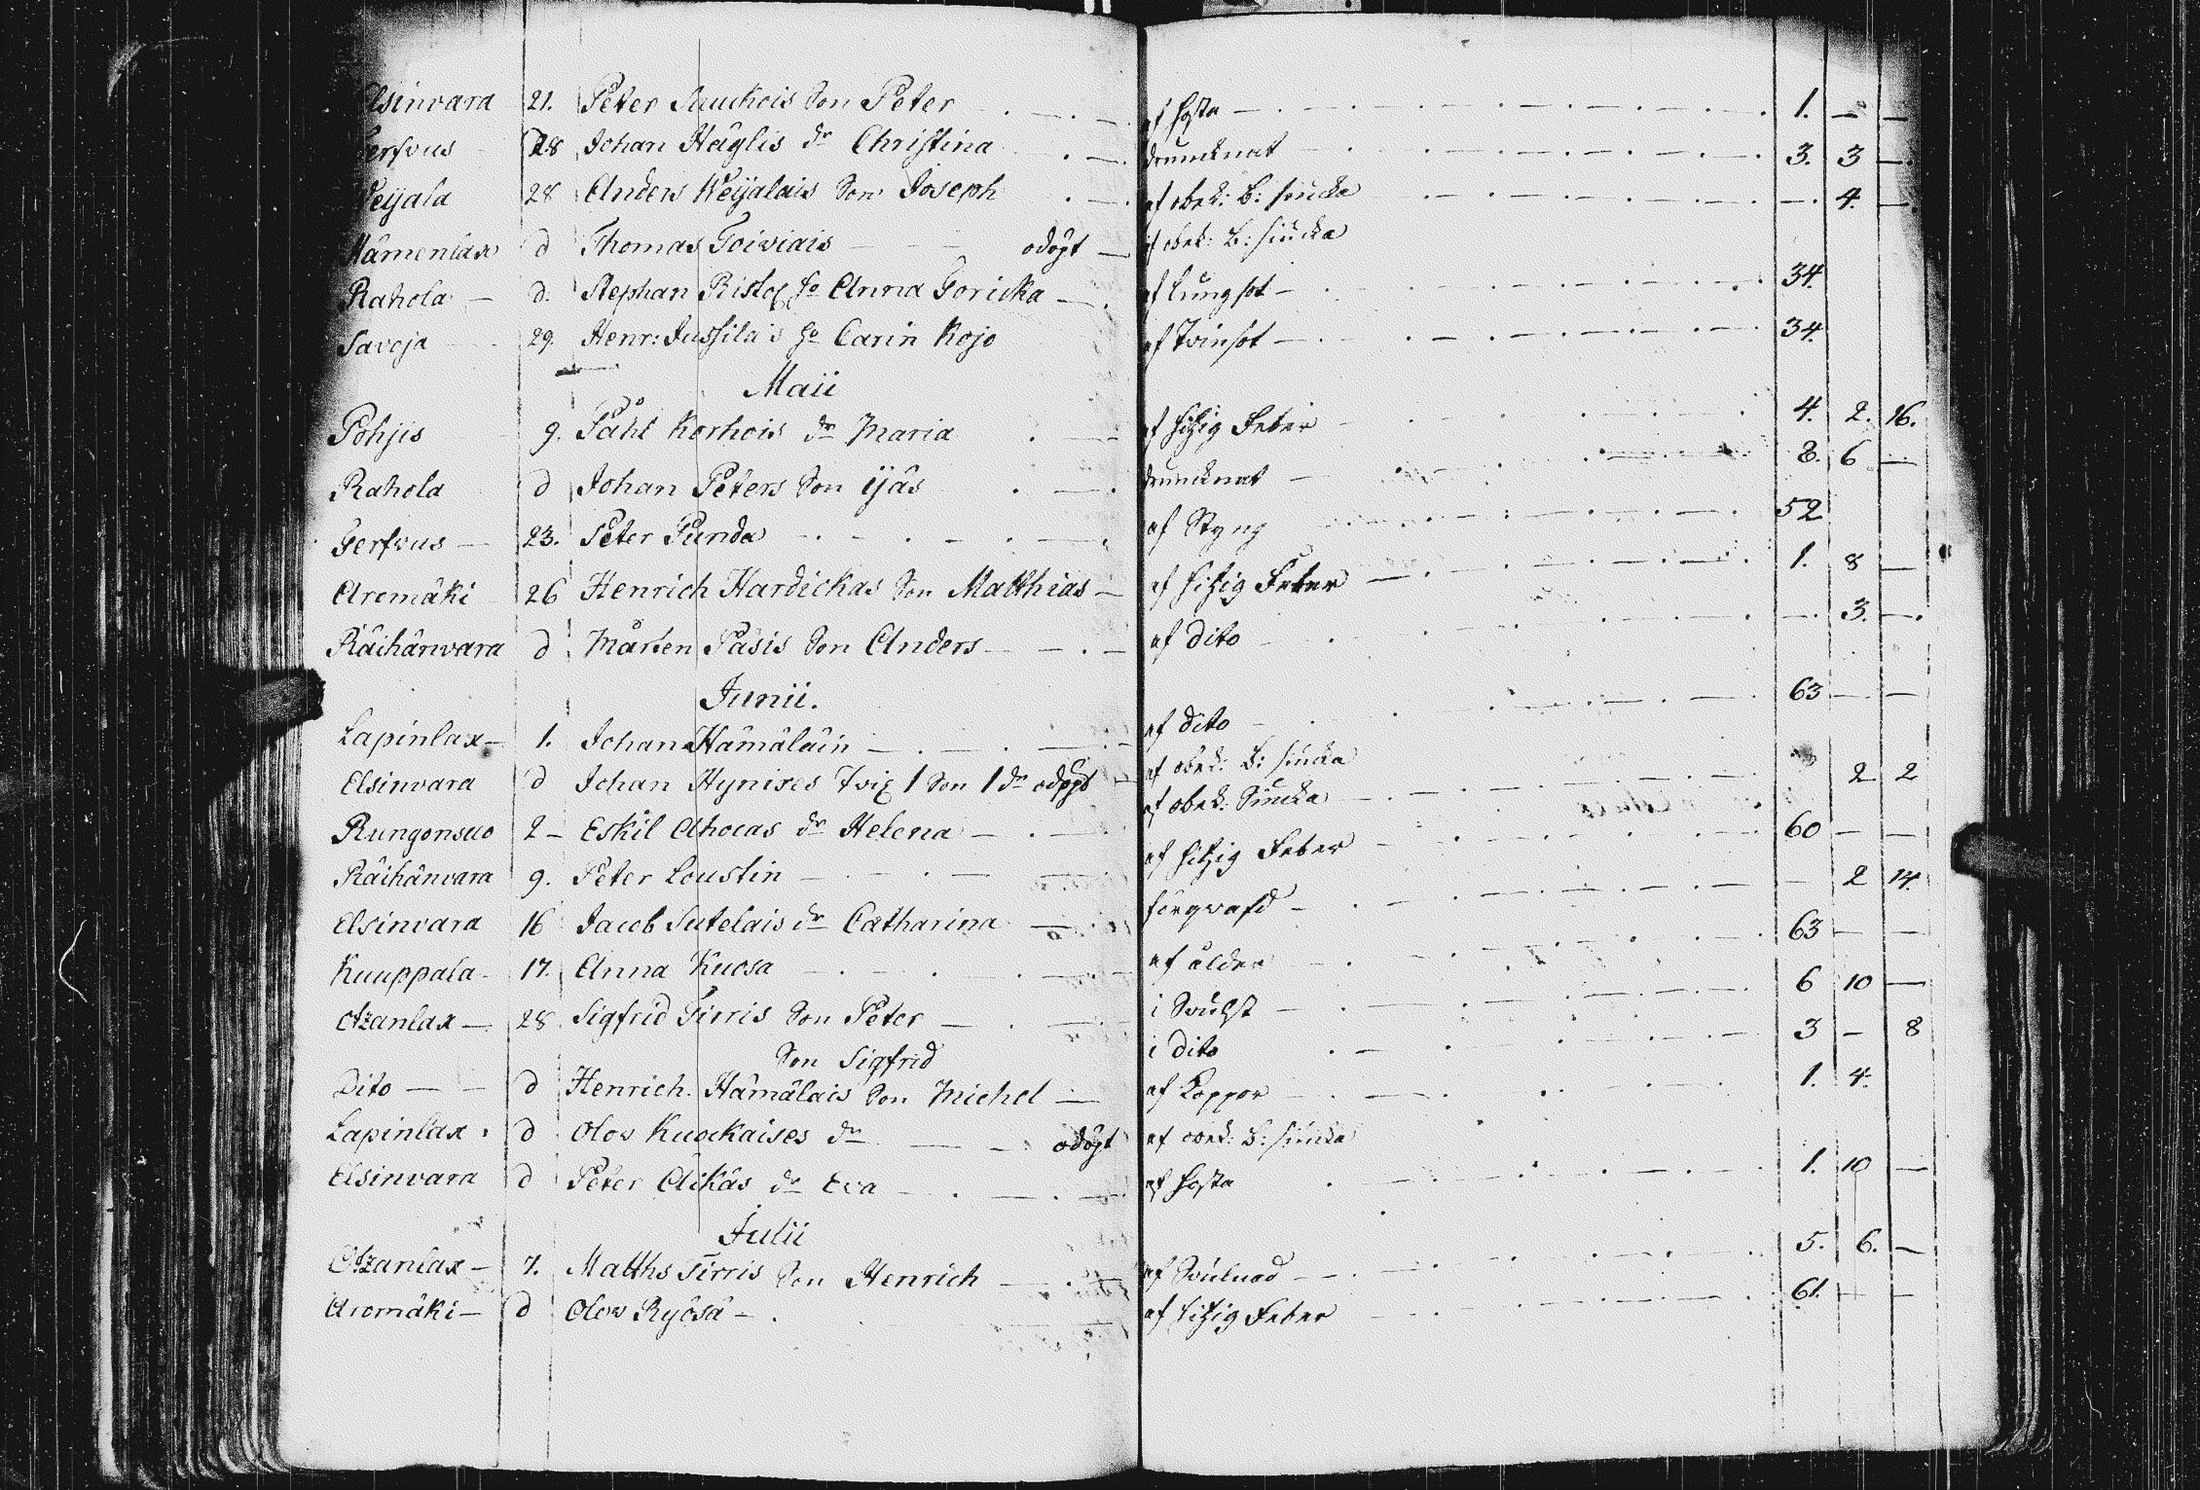 Elsinvara 21. Peter Sauckois Son Peter af hosta 1. — —
Gerfvus 28 Johan Häglis dr Christina drunknat 3. 3 —
Weijala 28 Anders Weijalais Son Joseph af obek: B: siucka — 4. —
Hämenlax d Thomas Toiviais odögt af obek: B: siucka
Rahola d. Stephan Ristol ho Anna Goricka af lungsot 34.
Savoja 29. Henr: Jussila's ho Carin Kojo af Tvinsot 34.
Maii
Pohjis 9. Påhl Korhois dr Maria af hitzig Feber 4. 2. 16.
Rahola d Johan Peters Son ijäs drunknat 8. 6 —
Gerfvus 23. Peter Punda af Styng 52
Aromäki 26 Henrich Hardickas Son Matthias af hitzig Feber 1. 8 —
Räihänvara d Mårten Päsis Son Anders af dito — 3. —
Junii.
Lapinlax 1. Johan Hämäläin af dito 63 — —
Elsinvara d Johan Hynixes Tvil 1 Son 1 dr odögt af obek: B: siucka
Rungonsuo 2 Eskil Ahocas dr Helena af obek: Siucka 2 2
Räihänvara 9. Peter Loustin af hitzig Feber 60 — —
Elsinvara 16 Jacob Sutelais dr Catharina förqvafd — 2 14.
Kuuppala 17. Anna Kuosa af ålder 63 — —
Atzanlax 28. Sigfrid Tirris Son Peter i Svulst 6 10 —
Son Sigfrid i dito 3 — 8
Dito d Henrich Hämäläis Son Michel af Koppor 1. 4.
Lapinlax d Olov Kuockaises dr odögt af obek: B: siucka
Elsinvara d Peter Aikäs dr Eva af hosta 1. 10 —
Julii
Atzanlax 7. Matths Tirris Son Henrich af Svulnad 5. 6. —
Aromäki d Olov Ryösä af hitzig Feber 61. — —